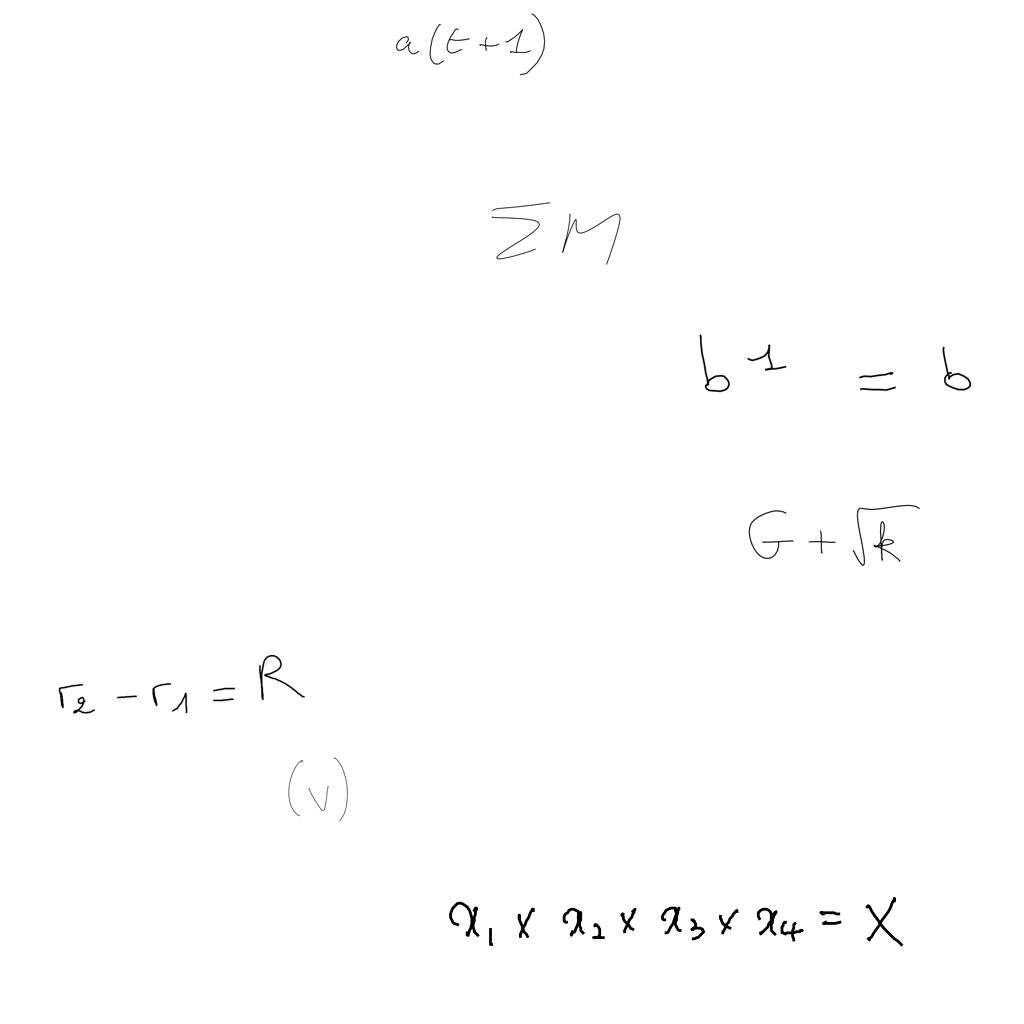 a(t+1)
∑M
b¹ = b
G+√k
r₂ - r₁ = R
(v)
x₁ × x₂ × x₃ × x₄ = X